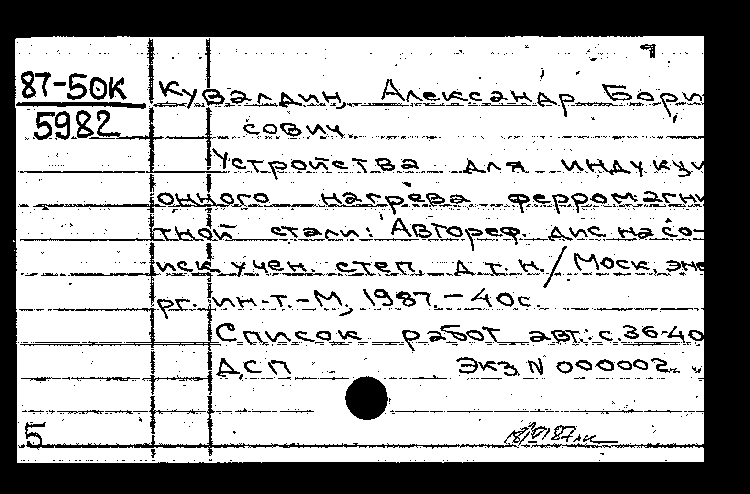 87-50К
5982
Кувалдин, Александр Бори
сович.
Устройства для индукци
онного нагрева ферромагни
тной стали: Автореф. дис. на со-
иск. учен. степ. д. т. н. / Моск. эне
рг. ин-т.-М, 1987.-40с.
Список работ авт.: с.36-40
ДСП Экз N 000002
5